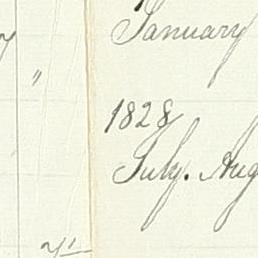 January
"
1828
July. Aug